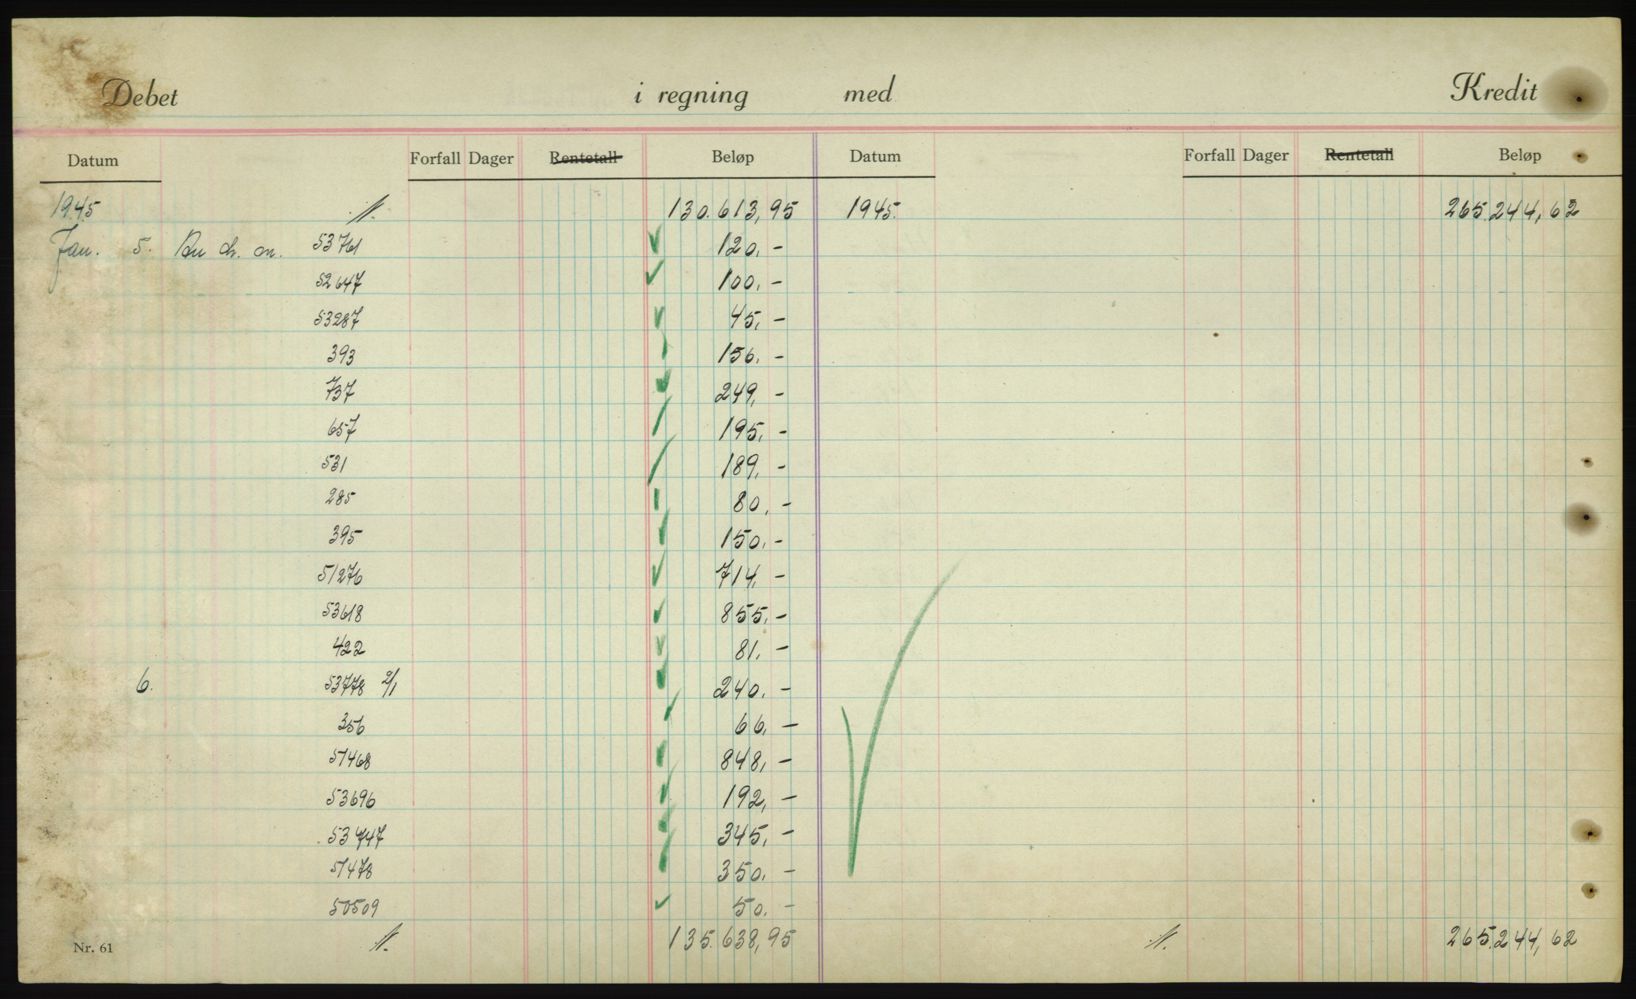 Debet i regning med Kredit
Datum Forfall Dager Rentetall Beløp Datum Forfall Dager Rentetall Beløp
1945 130.613,95 1945. 265.244,62
Jan. 5. 53761 120,-
52647 100,-
53287 45,-
393 156.-
737 249,-
657 195,-
531 189,-
285 80,-
395 150,-
51276 714,-
53618 855,-
422 81,-
6. 53778 2/1 240,-
356 66,-
51468 848,-
53696 192,-
53747 345,-
51478 350,-
50509 50,-
Nr. 61 135.638,95 265.244,62